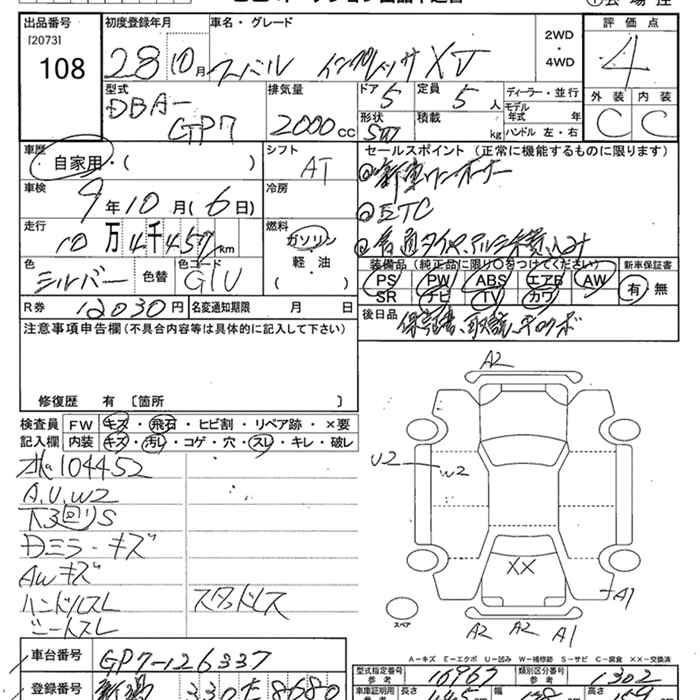 出品番号
[2073]
108
初度登録年月
28 10月
車名・グレード
スバル インプレッサ XV
2WD
・
4WD
評価点
4
型式
DBA-
GP7
排気量
2000cc
ドア 5
定員 5人
ディーラー・並行
形状 SW
積載 kg
モデル年式 年
ハンドル 左・右
外装 内装
C C
車歴
自家用・( )
シフト
AT
車検
9年10月(6日)
冷房
走行
10万4千457km
燃料
ガソリン
・
軽・油
( )
色
シルバー
色替
色コード
G1U
R券 12030円
名変通知期限 月 日
セールスポイント (正常に機能するものに限ります)
①新車ワンオーナー
②ETC
装備品(純正品に限り○をつけてください)
PS PW ABS エアB AW
SR ナビ TV カワ
新車保証書
有 無
後日品
保証書、取説、
注意事項申告欄(不具合内容等は具体的に記入して下さい)
修復歴 有 [箇所 ]
検査員 FW キズ・飛石・ヒビ割・リペア跡・×要
記入欄 内装 キズ・汚レ・コゲ・穴・スレ・キレ・破レ
104452
A.U.W2
下3回りS
Dミラーキズ
AWキズ
ハンドルスレ
スタッドレス
シートスレ
A2
U2
W2
XX
A1
A2 A2 A1
スペア
A-キズ E-エクボ U-凹み W-補修跡 S-サビ C-腐食 XX-交換済
車台番号
GP7-126337
型式指定番号 参考
16963
類別区分番号 参考
1302
登録番号
新潟 330 た 8680
車庫証明用 参考
長さ
幅
高さ